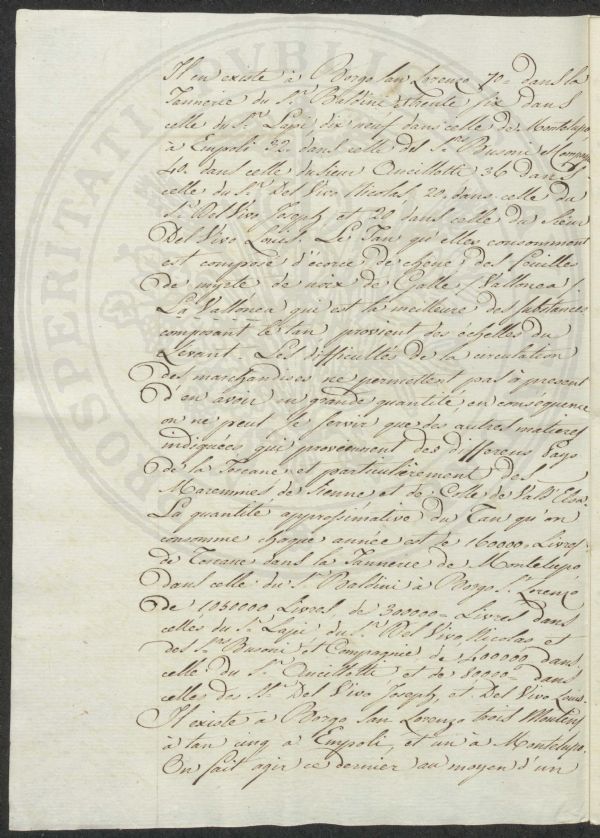 Il en existe à Borgo San Lorenzo 70 - dans la
Tannerie du Sr. Baldini & trente six dans
celle du Sr. Lapi, dix neuf dans celle de Montelupo
à Empoli 32 dans celle des Srs. Busoni et Compagnie
40. dans celle du Sieur Ancillotti 36 dans
celle du Sr. Del Vivo Nicolas, 20. dans celle du
Sr. Del Vivo Joseph, et 20 dans celle du Sieur
Del Vivo Louis. Le Tan qu'elles consomment
est composé d'écorce de chêne, des feuilles
de myrte de noix de Galle /Vallonea/
La Vallonea qui est la meilleure des substances
composant le tan provient des échelles du
Levant. Les difficultés de la circulation
des marchandises ne permettent pas à present
d'en avoir en grande quantité, en consequence
on ne peut se servir que des autres matieres
indiquées qui proviennent des differens Pays
de la Toscane et particulièrement des
Maremmes de Sienne et de Colle de Val d'Elsa.
La quantité approximative du Tan qu'on
consomme chaque année est de 160000. Livres
de Toscane dans la Tannerie de Montelupo
dans celle du Sr. Baldini à Borgo S. Lorenzo
de 1050000 Livres de 300000 Livres dans
celles du Sr. Lapi, du Sr. Del Vivo Nicolas et
des Srs. Busoni et Compagnie, de 400000 dans
celle du Sr. Ancillotti et de 80000 dans
celle de Mr. Del Vivo Joseph, et Del Vivo Louis.
Il existe a Borgo San Lorenzo trois Moulins
à tan cinq a Empoli, et un à Montelupo.
On fait agir ce dernier au moyen d'un
PROSPERITATI PUBLI